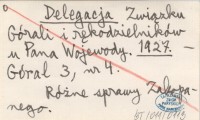 Delegacja Związku
Górali i rękodzielników
u Pana Wojewody. 1927. —
Góral 3, nr 4.
Różne sprawy Zakopa-
nego.